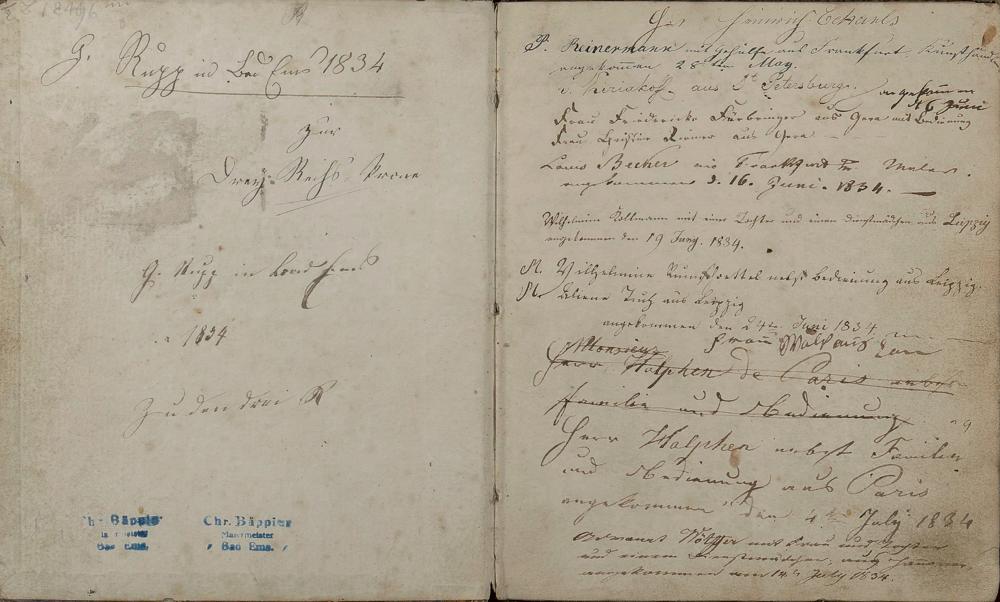 G. Rupp in Bad Ems 1834
zur
Drey Reihs Krone
G. Rupp in Baad Ems
1834
Zu den drei R
Chr. Bäppler
Bad Ems.
Chr. Bäppler
Malermeister
Bad Ems.
Heinrich
P. Reinermann mit Gehülfe aus Frankfurt Kunsthändler
angekommen 28ten May.
aus St Petersburg. angekommen
16 Juni
Frau Friedericke Fürbringer aus Gera mit Bedienung
Frau Christine aus Gera
Louis Becker aus Frankfurt Maler.
angekommen d. 16. Juni. 1834.
Wilhelmine Kollmann mit einer Tochter und einem Dienstmädchen aus Leipzig
angekommen den 19 Juny. 1834.
M. Wilhelmine nebst Bedienung aus Leipzig.
M. aus Leipzig
angekommen den 24ten Juni 1834.
Frau
Monsieur
Herr Halphen de Paris nebst
Familie und Bedienung
Herr Halphen nebst Familie
und Bedienung aus Paris
angekommen den 4ten July 1834
mit Frau und Tochter
und einem Dienstmädchen, aus
angekommen am 14ten July 1834.